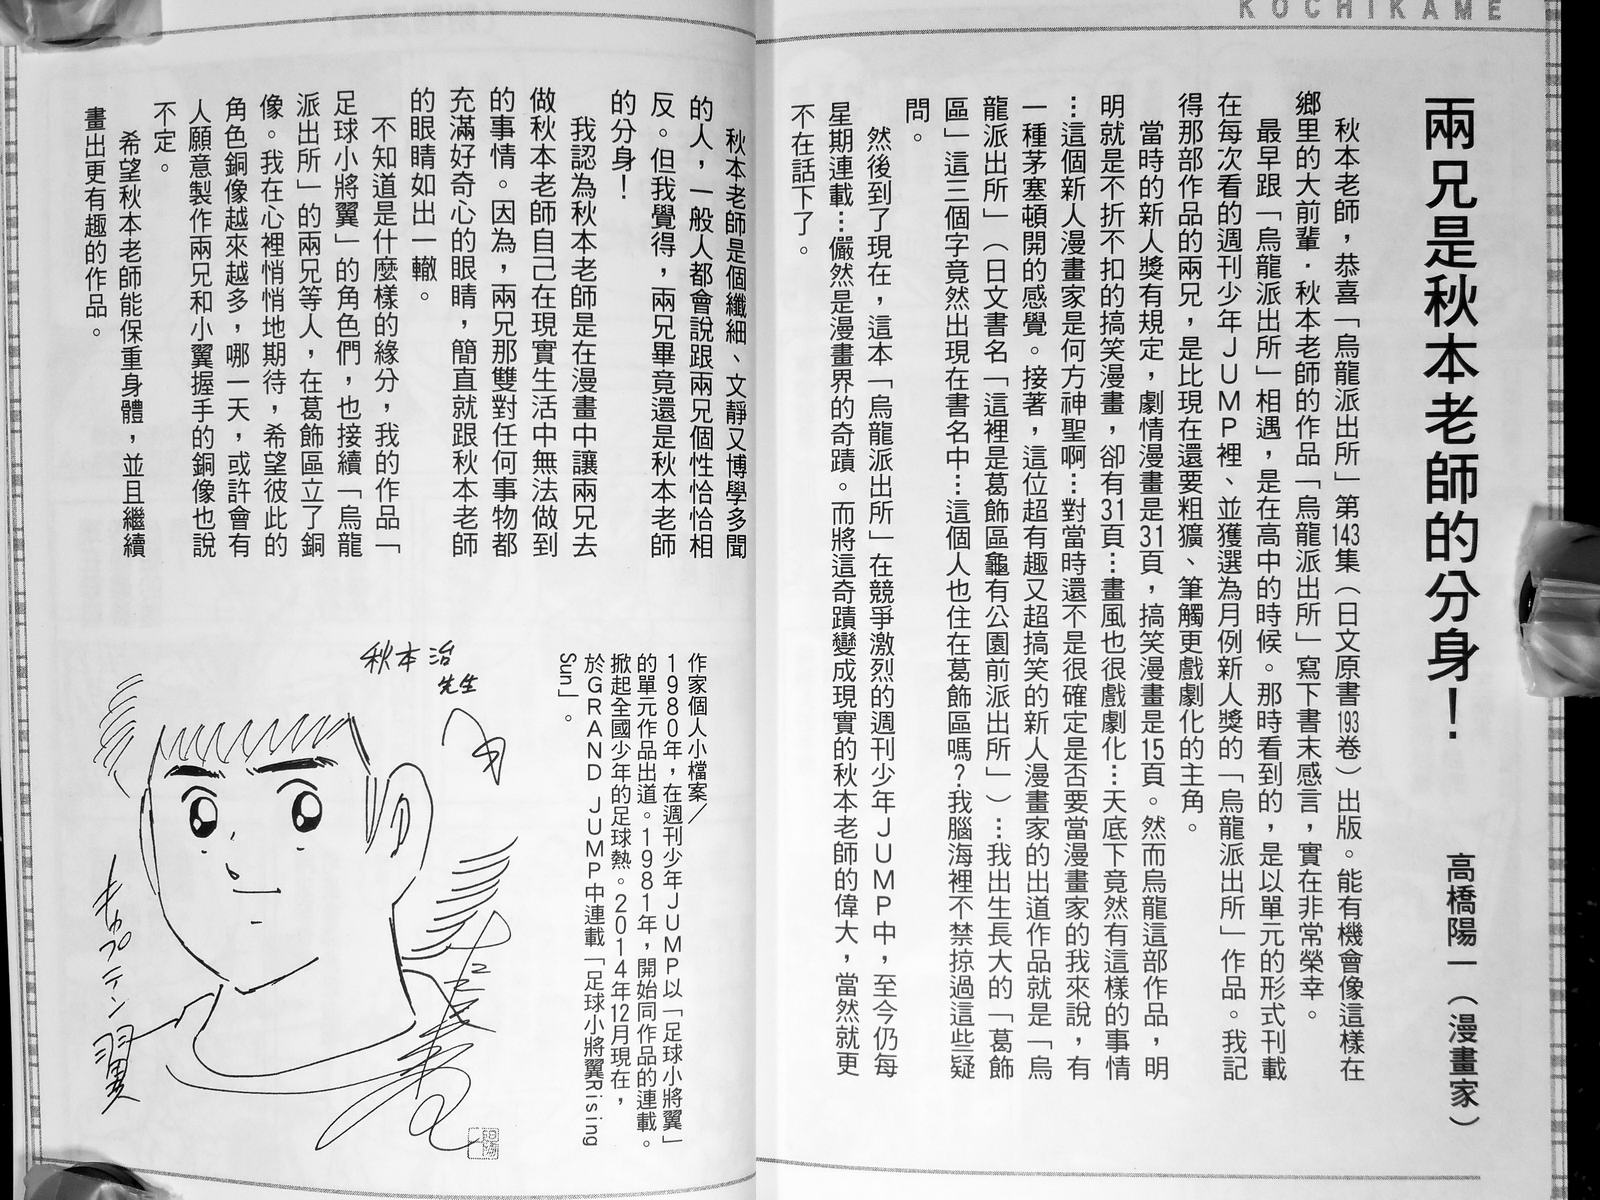 KOCHIKAME
兩兄是秋本老師的分身！
高橋陽一（漫畫家）
秋本老師，恭喜「烏龍派出所」第143集（日文原書193卷）出版。能有機會像這樣在
鄉里的大前輩．秋本老師的作品「烏龍派出所」寫下書末感言，實在非常榮幸。
最早跟「烏龍派出所」相遇，是在高中的時候。那時看到的，是以單元的形式刊載
在每次看的週刊少年ＪＵＭＰ裡、並獲選為月例新人獎的「烏龍派出所」作品。我記
得那部作品的兩兄，是比現在還要粗獷、筆觸更戲劇化的主角。
當時的新人獎有規定，劇情漫畫是31頁，搞笑漫畫是15頁。然而烏龍這部作品，明
明就是不折不扣的搞笑漫畫，卻有31頁…畫風也很戲劇化…天底下竟然有這樣的事情
…這個新人漫畫家是何方神聖啊…對當時還不是很確定是否要當漫畫家的我來說，有
一種茅塞頓開的感覺。接著，這位超有趣又超搞笑的新人漫畫家的出道作品就是「烏
龍派出所」（日文書名「這裡是葛飾區龜有公園前派出所」）…我出生長大的「葛飾
區」這三個字竟然出現在書名中…這個人也住在葛飾區嗎？我腦海裡不禁掠過這些疑
問。
然後到了現在，這本「烏龍派出所」在競爭激烈的週刊少年ＪＵＭＰ中，至今仍每
星期連載…儼然是漫畫界的奇蹟。而將這奇蹟變成現實的秋本老師的偉大，當然就更
不在話下了。
秋本老師是個纖細、文靜又博學多聞
的人，一般人都會說跟兩兄個性恰恰相
反。但我覺得，兩兄畢竟還是秋本老師
的分身！
我認為秋本老師是在漫畫中讓兩兄去
做秋本老師自己在現實生活中無法做到
的事情。因為，兩兄那雙對任何事物都
充滿好奇心的眼睛，簡直就跟秋本老師
的眼睛如出一轍。
不知道是什麼樣的緣分，我的作品「
足球小將翼」的角色們，也接續「烏龍
派出所」的兩兄等人，在葛飾區立了銅
像。我在心裡悄悄地期待，希望彼此的
角色銅像越來越多，哪一天，或許會有
人願意製作兩兄和小翼握手的銅像也說
不定。
希望秋本老師能保重身體，並且繼續
畫出更有趣的作品。
作家個人小檔案／
1980年，在週刊少年JUMP以「足球小將翼」
的單元作品出道。1981年，開始同作品的連載。
掀起全國少年的足球熱。2014年12月現在，
於GRAND JUMP中連載「足球小將翼Rising
Sun」。
秋本治
先生
キャプテン翼